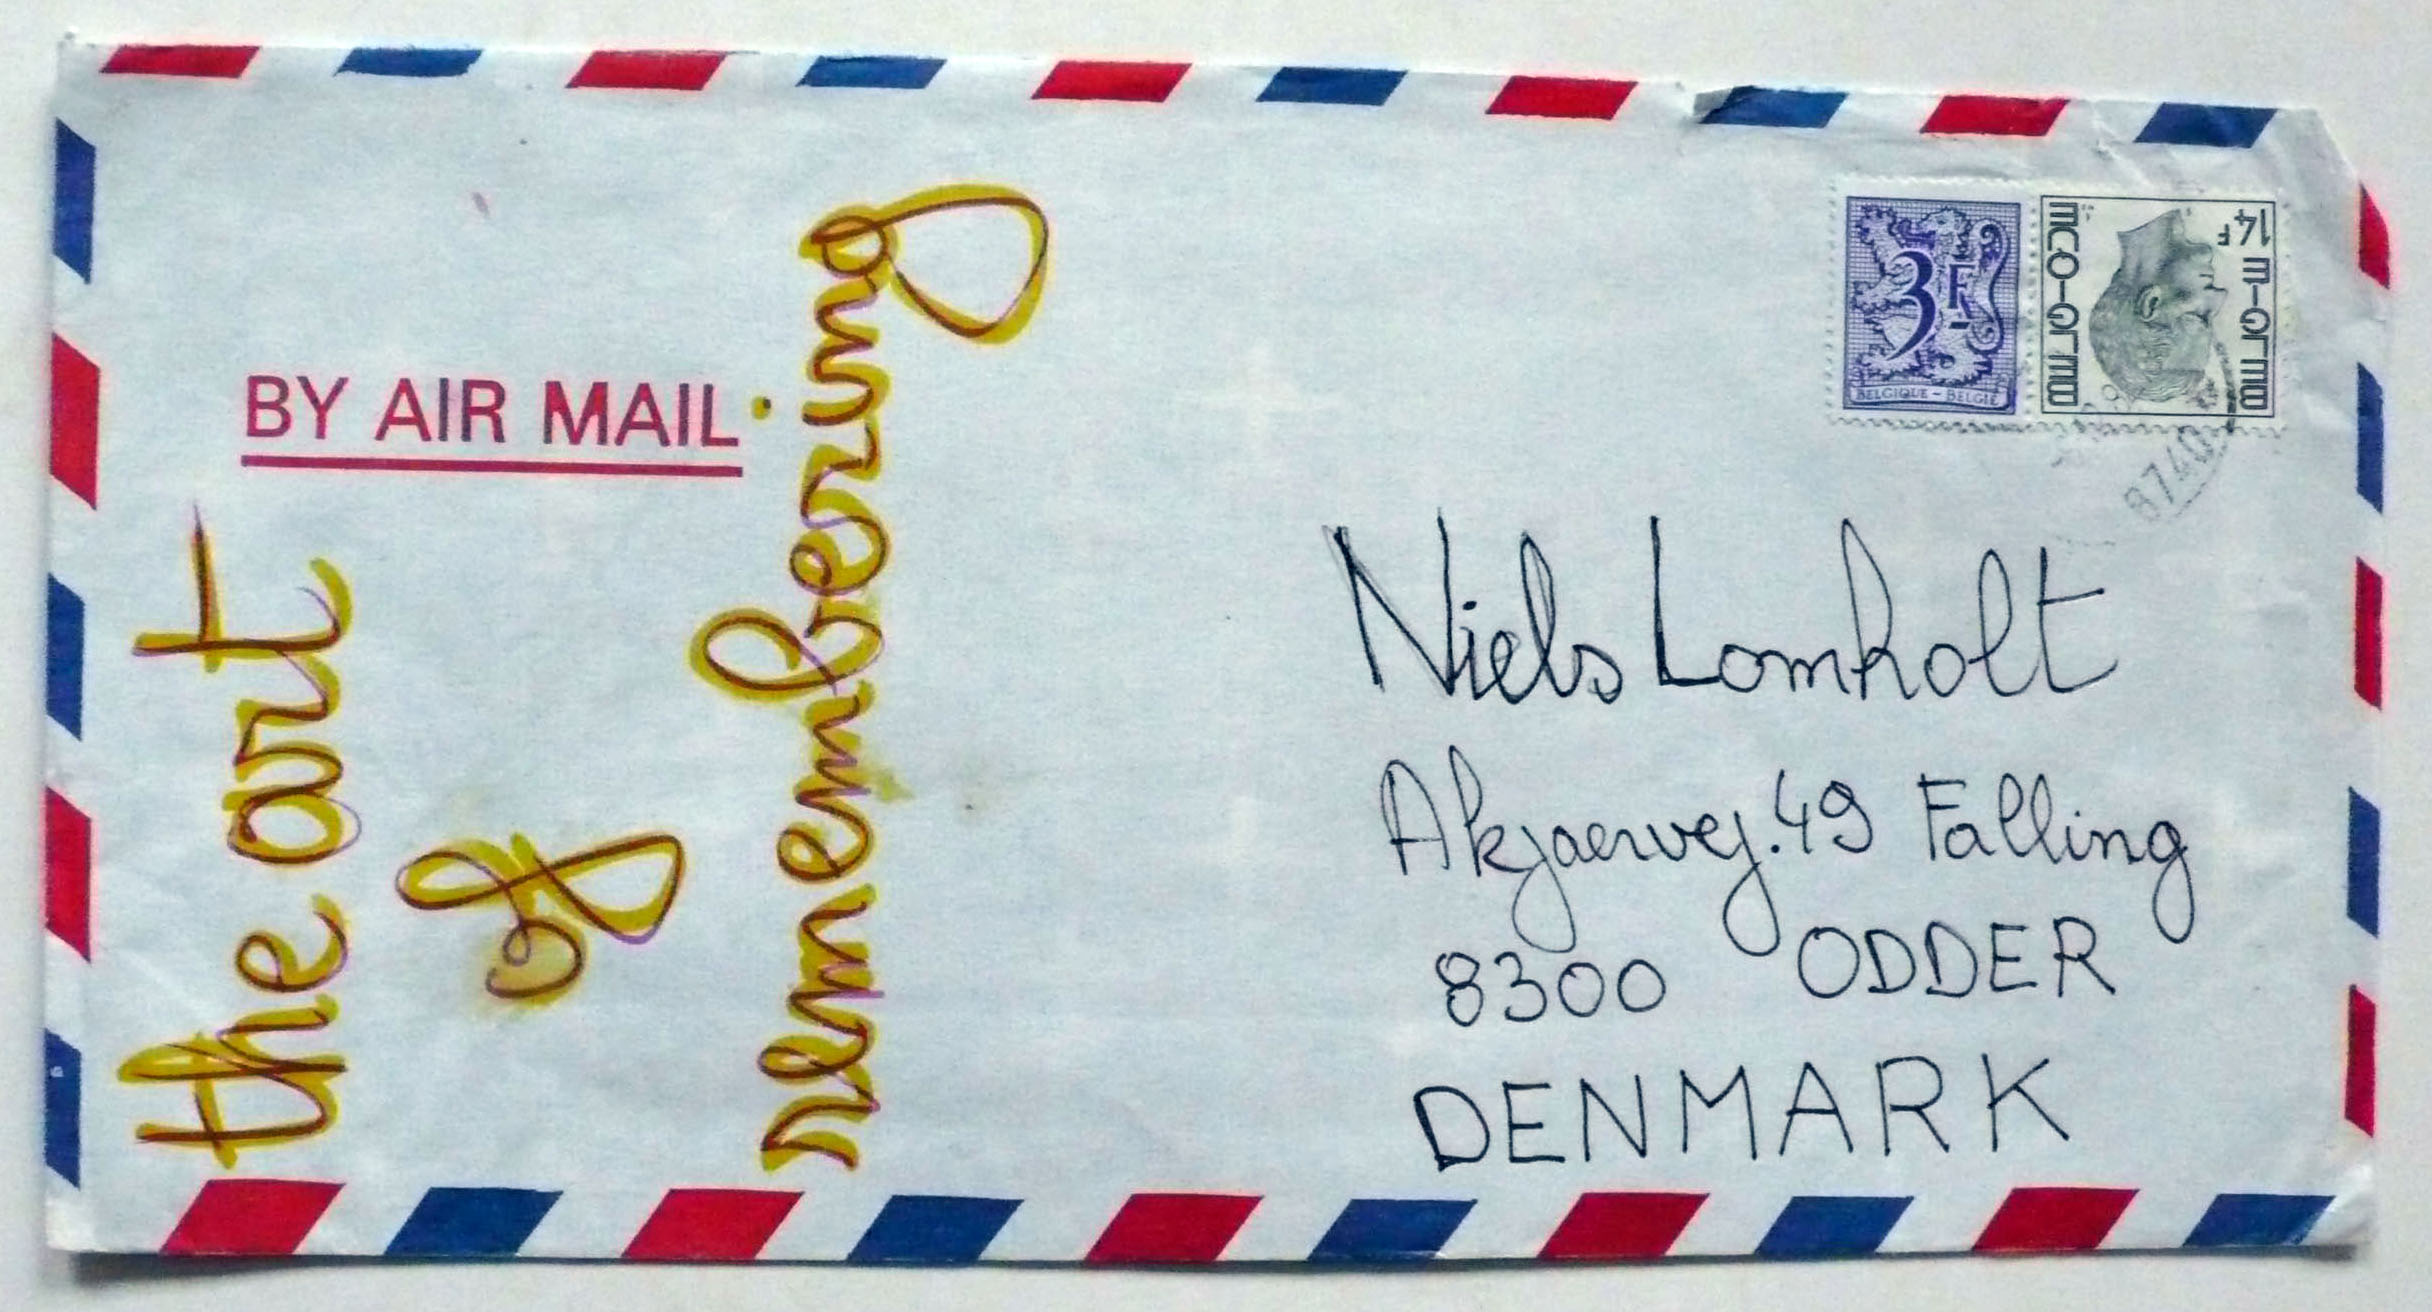 BY AIR MAIL
the art
of
remembering
3F
BELGIQUE - BELGIË
14F
BELGIE
BELGIQUE
Niels Lomholt
Akjaervej. 49 Falling
8300 ODDER
DENMARK